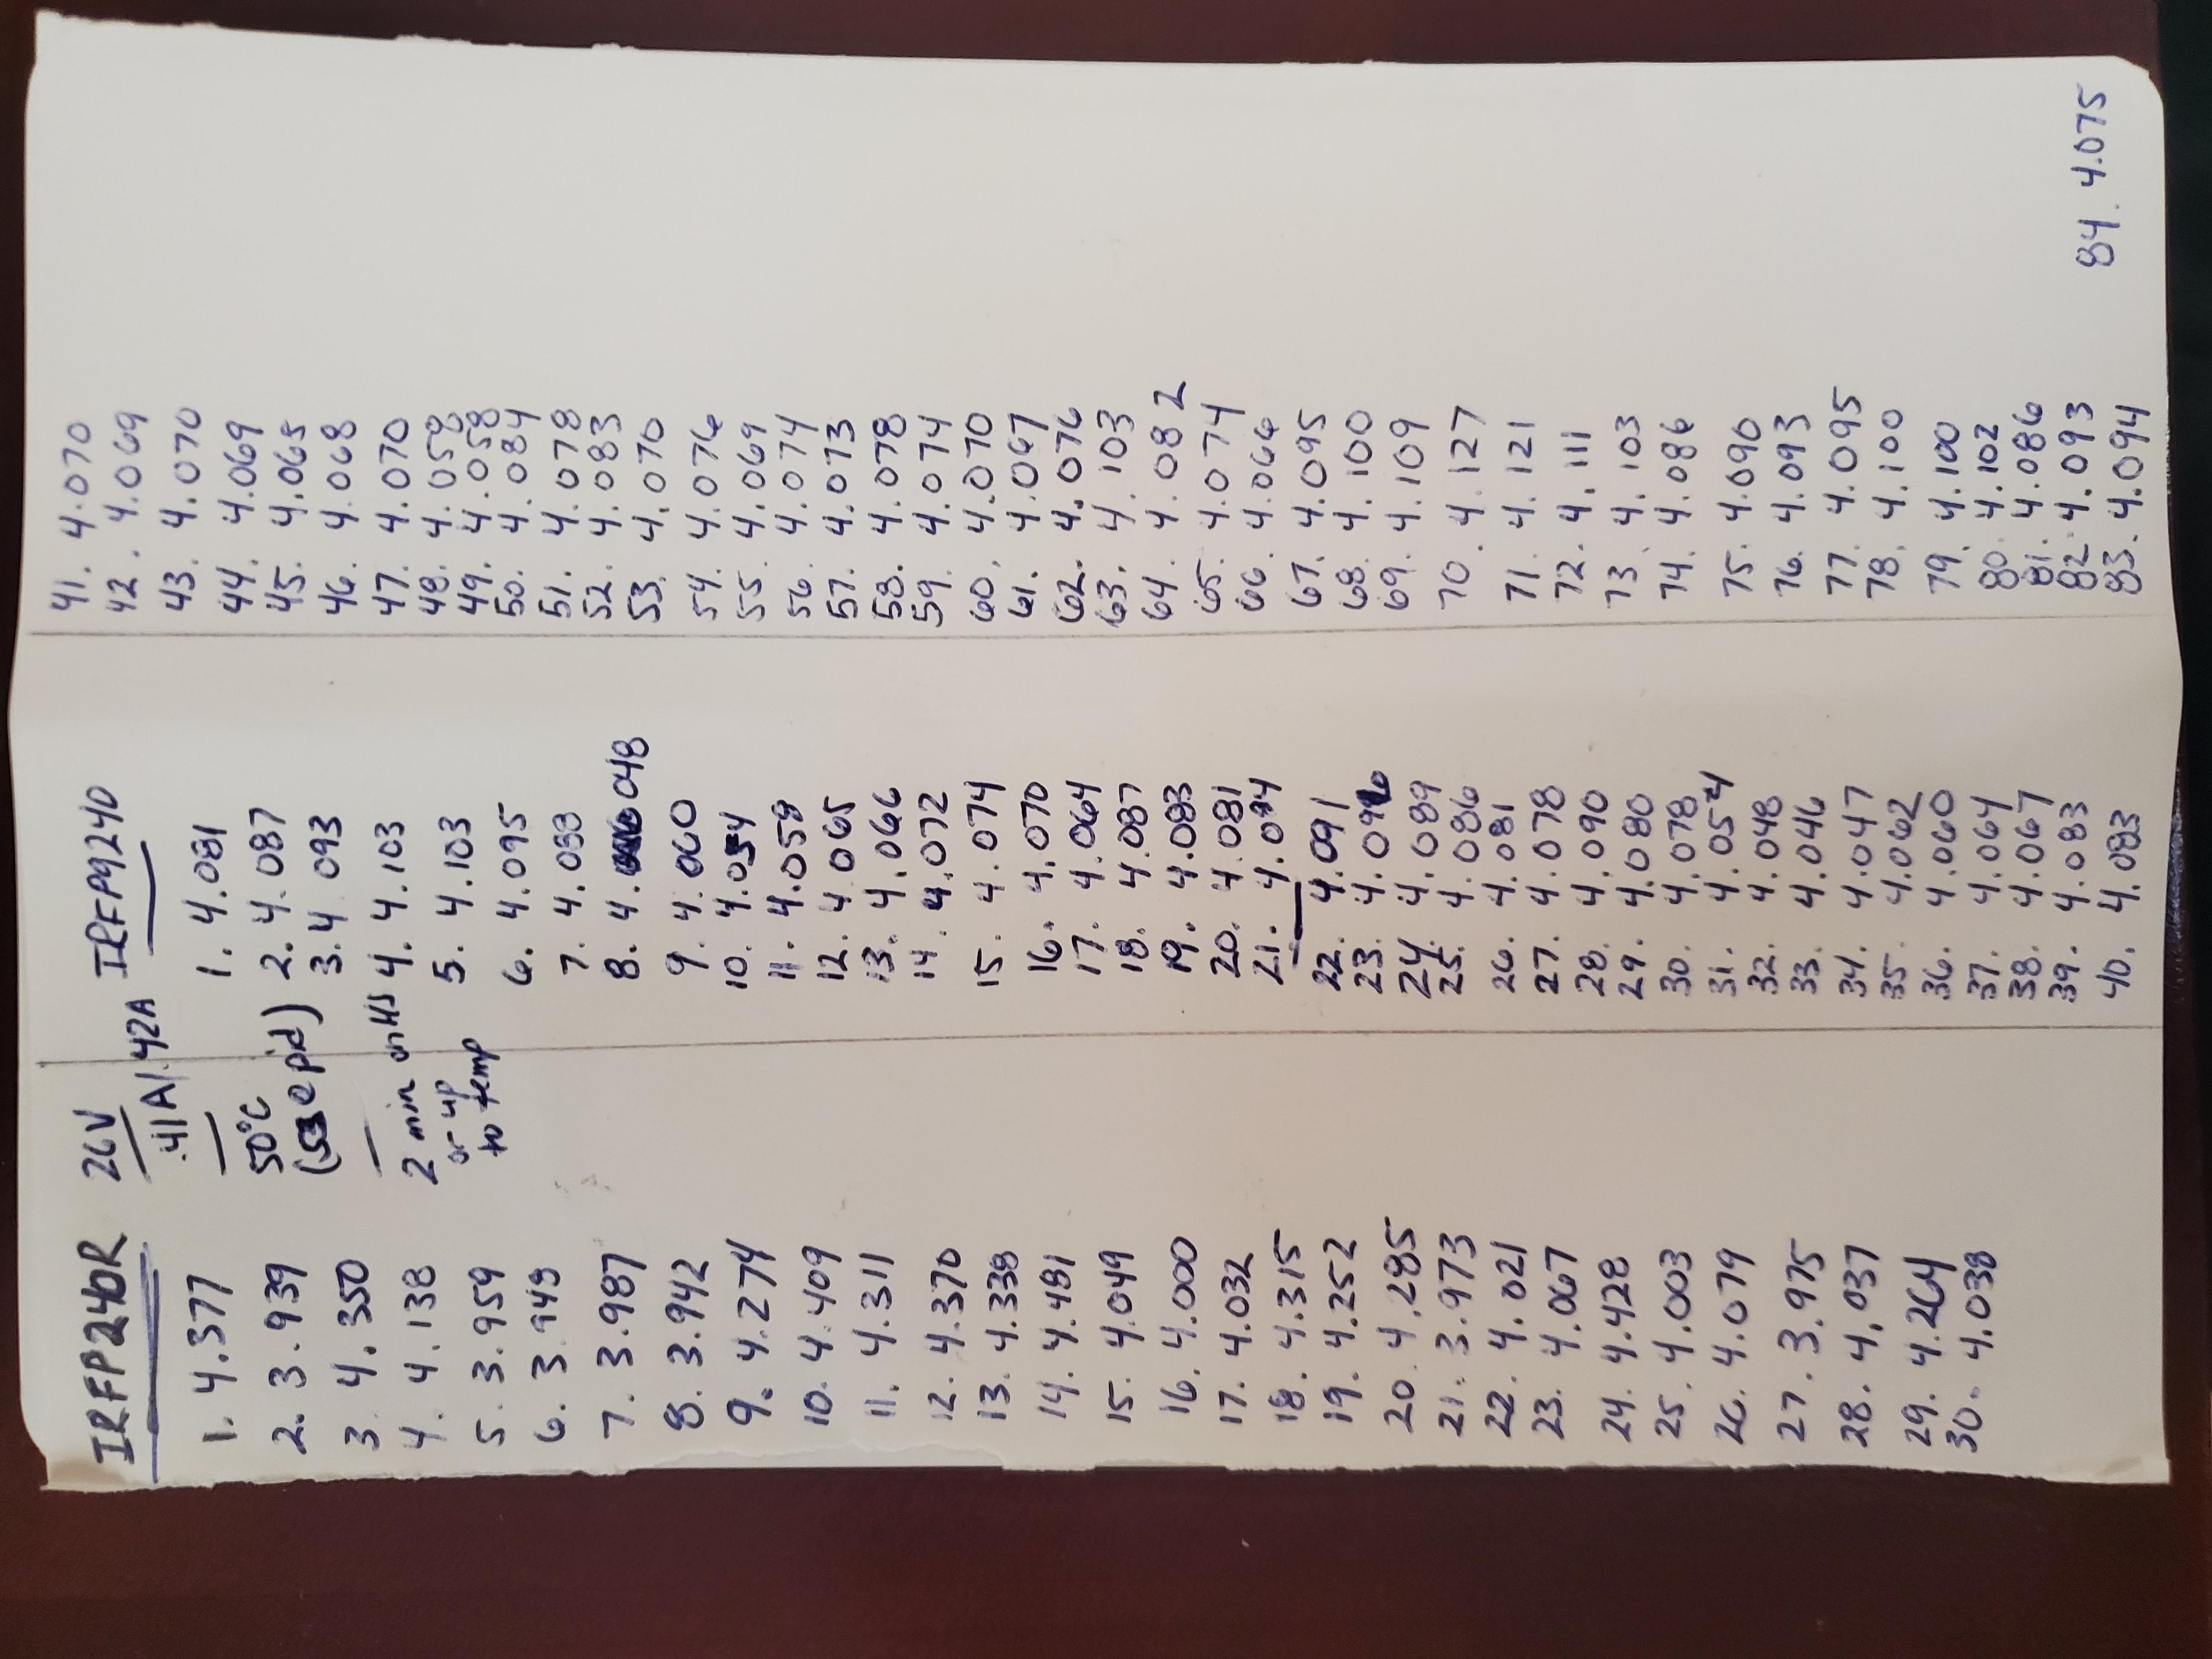 IRFP240R
1. 4.377
2. 3.939
3. 4.350
4. 4.138
5. 3.959
6. 3.949
7. 3.987
8. 3.942
9. 4.274
10. 4.409
11. 4.311
12. 4.370
13. 4.338
14. 4.481
15. 4.049
16. 4.000
17. 4.032
18. 4.315
19. 4.252
20. 4.285
21. 3.973
22. 4.021
23. 4.067
24. 4.428
25. 4.003
26. 4.079
27. 3.975
28. 4.037
29. 4.264
30. 4.038
26V
.41A/.42A
50°C
(53 @ pid)
2 min on HS
or up
to temp
IRFP9240
1. 4.081
2. 4.087
3. 4.093
4. 4.103
5. 4.103
6. 4.095
7. 4.038
8. 4.048
9. 4.060
10. 4.054
11. 4.058
12. 4.065
13. 4.066
14. 4.072
15. 4.074
16. 4.070
17. 4.064
18. 4.087
19. 4.083
20. 4.081
21. 4.094
22. 4.091
23. 4.096
24. 4.089
25. 4.086
26. 4.081
27. 4.078
28. 4.090
29. 4.080
30. 4.078
31. 4.054
32. 4.048
33. 4.046
34. 4.047
35. 4.062
36. 4.060
37. 4.064
38. 4.067
39. 4.083
40. 4.083
41. 4.070
42. 4.069
43. 4.070
44. 4.069
45. 4.065
46. 4.068
47. 4.070
48. 4.058
49. 4.058
50. 4.084
51. 4.078
52. 4.083
53. 4.070
54. 4.076
55. 4.069
56. 4.074
57. 4.073
58. 4.078
59. 4.074
60. 4.070
61. 4.067
62. 4.076
63. 4.103
64. 4.082
65. 4.074
66. 4.066
67. 4.095
68. 4.100
69. 4.109
70. 4.127
71. 4.121
72. 4.111
73. 4.103
74. 4.086
75. 4.090
76. 4.093
77. 4.095
78. 4.100
79. 4.100
80. 4.102
81. 4.086
82. 4.093
83. 4.094
84. 4.075